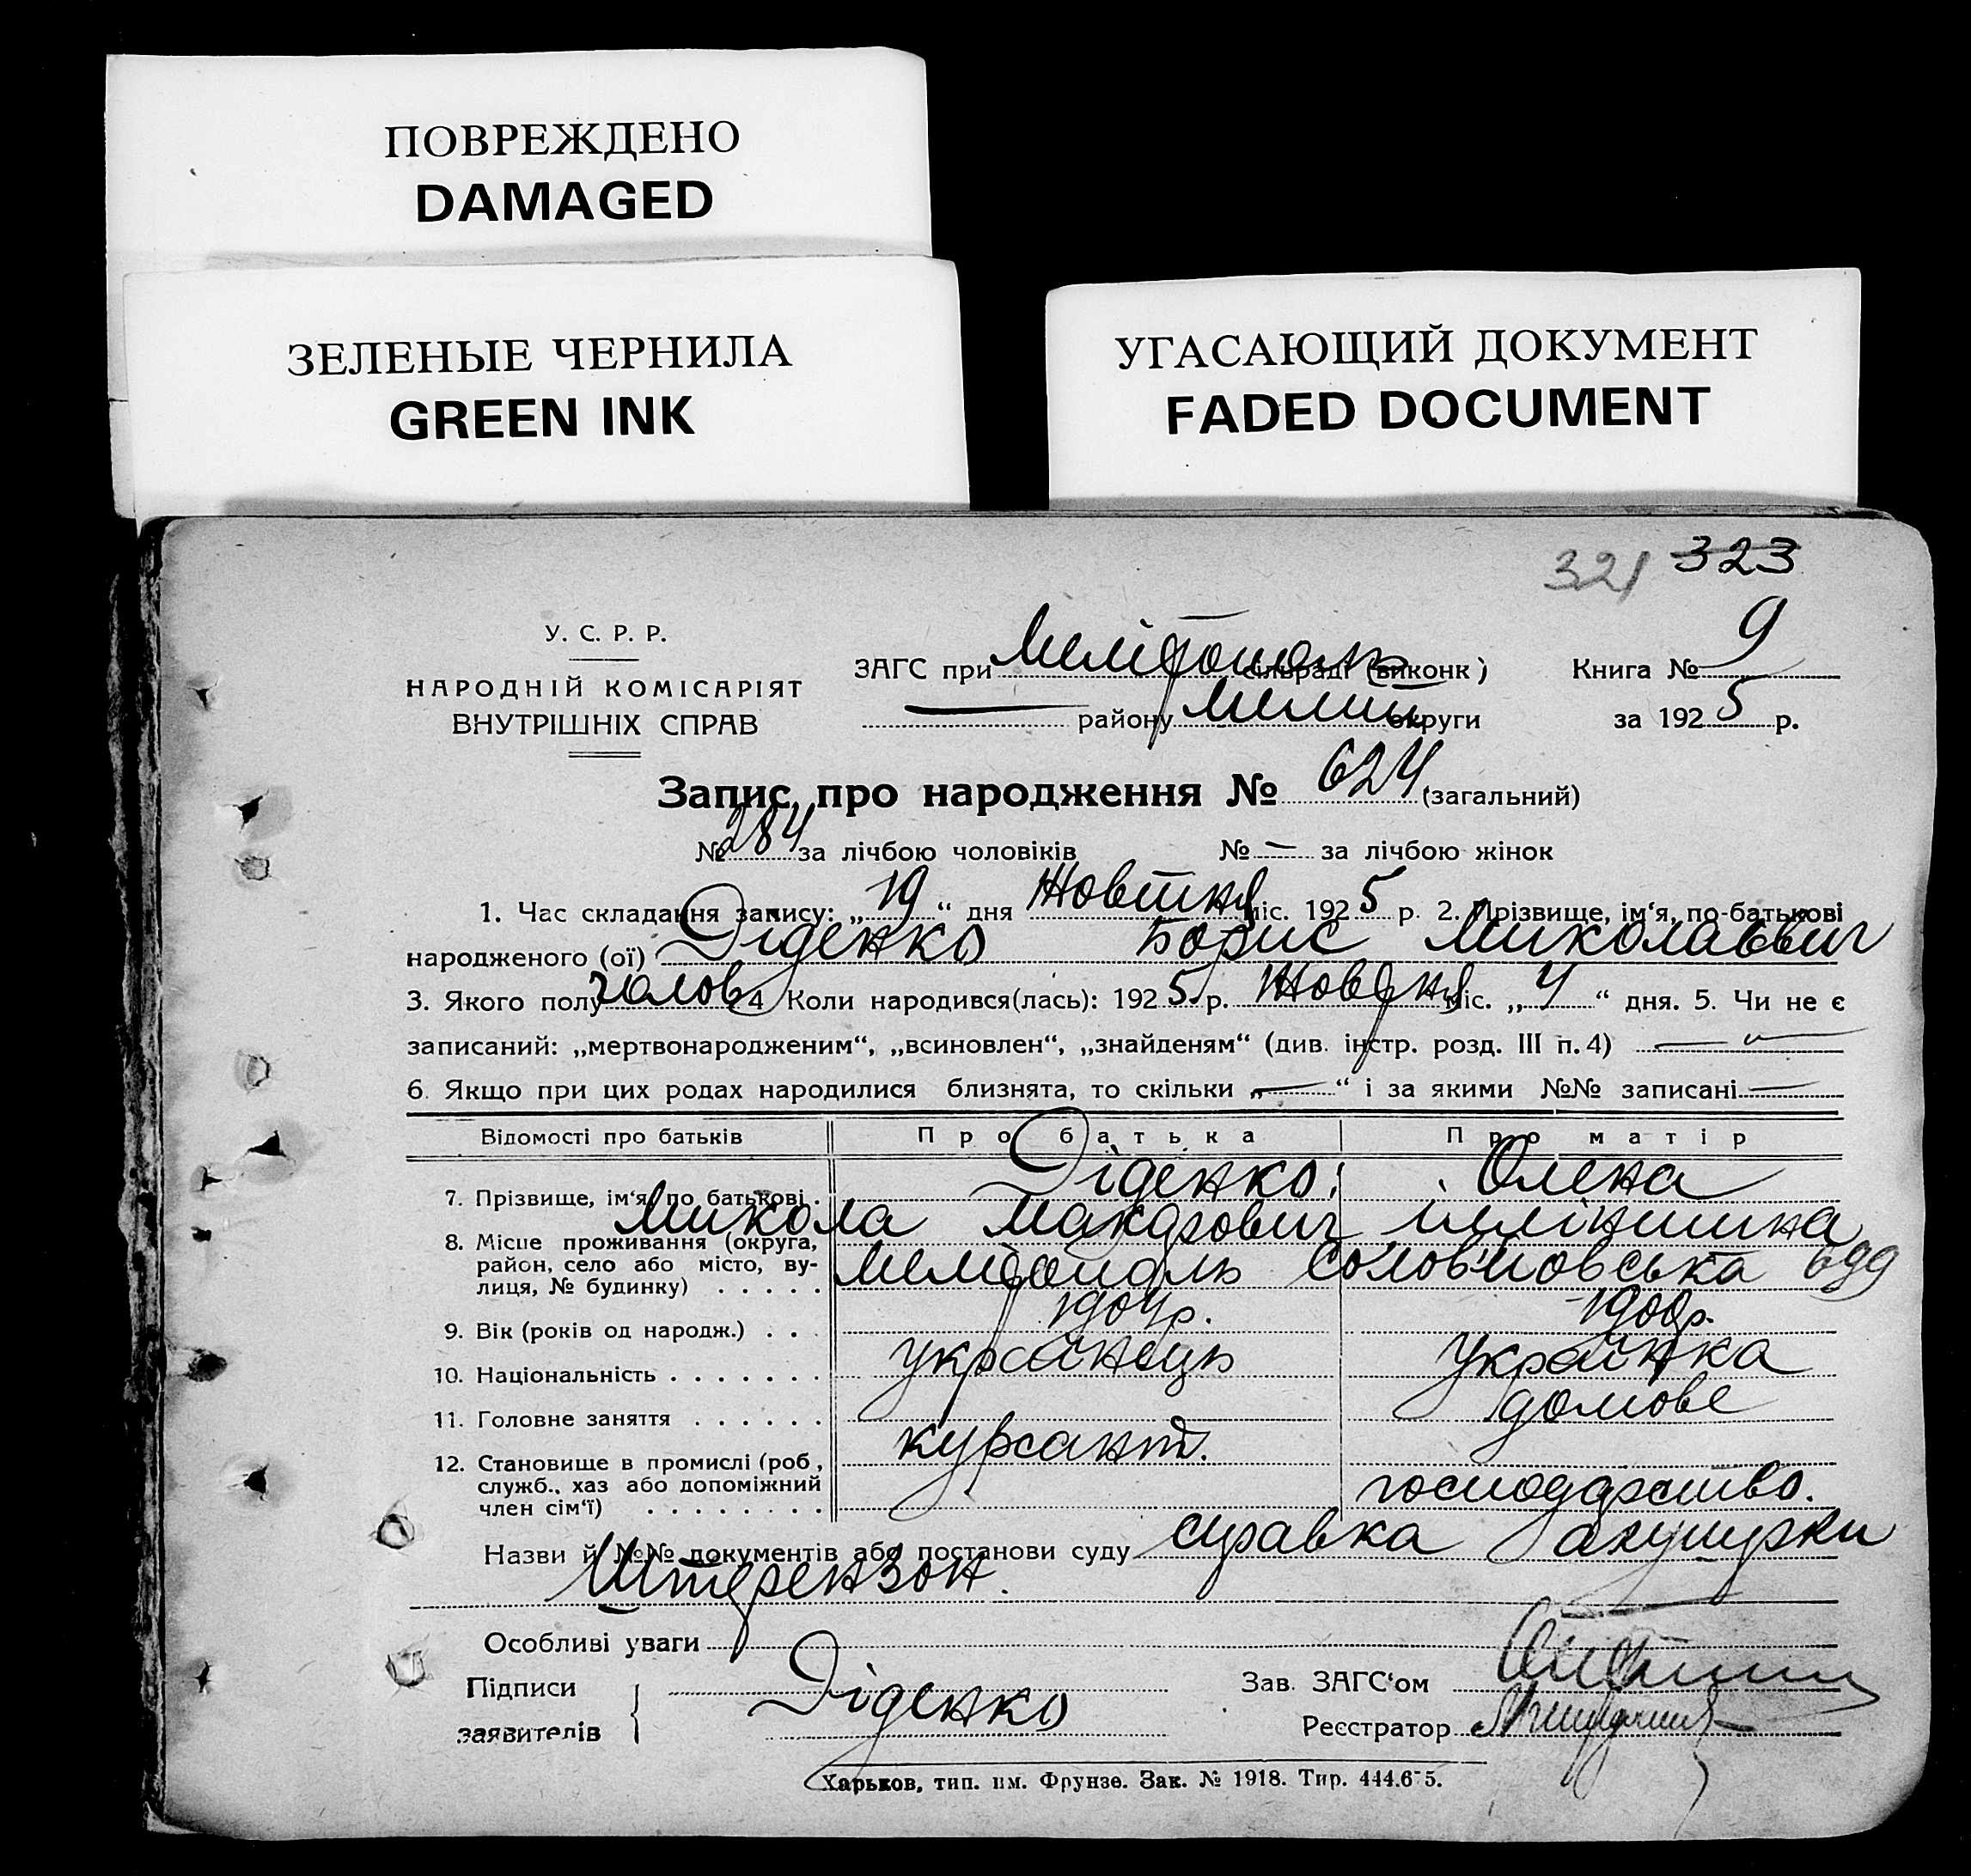 ПОВРЕЖДЕНО
DAMAGED
ЗЕЛЕНЫЕ ЧЕРНИЛА
GREEN INK
УГАСАЮЩИЙ ДОКУМЕНТ
FADED DOCUMENT
321 323
У. С. Р. Р.
НАРОДНІЙ КОМІСАРІЯТ
ВНУТРІШНІХ СПРАВ
ЗАГС при Мелітополь сільраді (виконк) Книга № 9
— району Мелит округи за 1925 р.
Запис про народження № 624 (загальний)
№ 284 за лічбою чоловіків № — за лічбою жінок
1. Час складання запису: „19“ дня Жовтня міс. 1925 р. 2. Прізвище, ім‘я, по-батькові
народженого (ої) Діденко Борис Миколаєвич
3. Якого полу чолов 4 Коли народився(лась): 1925 р. Жовтня міс. „4“ дня. 5. Чи не є
записаний: „мертвонародженим“, „всиновлен“, „знайденям“ (див. інстр. розд. III п. 4) —
6. Якщо при цих родах народилися близнята, то скільки „—“ і за якими №№ записані —
Відомості про батьків Про батька Про матір
7. Прізвище, ім‘я, по батькові . Діденко Олена
Микола Макарович
8. Місце проживання (округа, район, село або місто, вулиця, № будинку) . . . . . Мелітополь
9. Вік (років од народж.) . . . 1904р. 1900р.
10. Національність . . . . . . . українець українка
11. Головне заняття . . . . . . курсант. домове
12. Становище в промислі (роб, служб., хаз або допоміжний член сім‘ї) . . . . . . . . господарство.
Назви й №№ документів або постанови суду справка акушерки
Штерензон.
Особливі уваги
Підписи заявителів Діденко
Зав. ЗАГС‘ом
Реєстратор
Харьков, тип. им. Фрунзе. Зак. № 1918. Тир. 444.675.